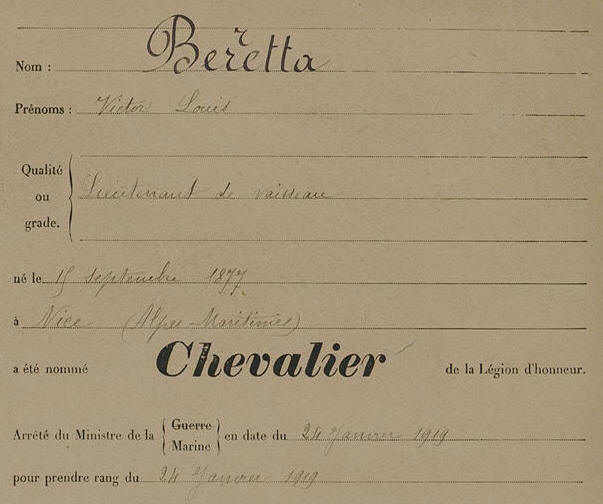 Nom : Beretta
Prénoms : Victor Louis
Qualité
ou
grade.
Lieutenant de vaisseau
né le 15 septembre 1877
à Nice (Alpes-Maritimes)
a été nommé Chevalier de la Légion d'honneur.
Arrêté du Ministre de la { Guerre
Marine } en date du 24 Janvier 1919
pour prendre rang du 24 Janvier 1919